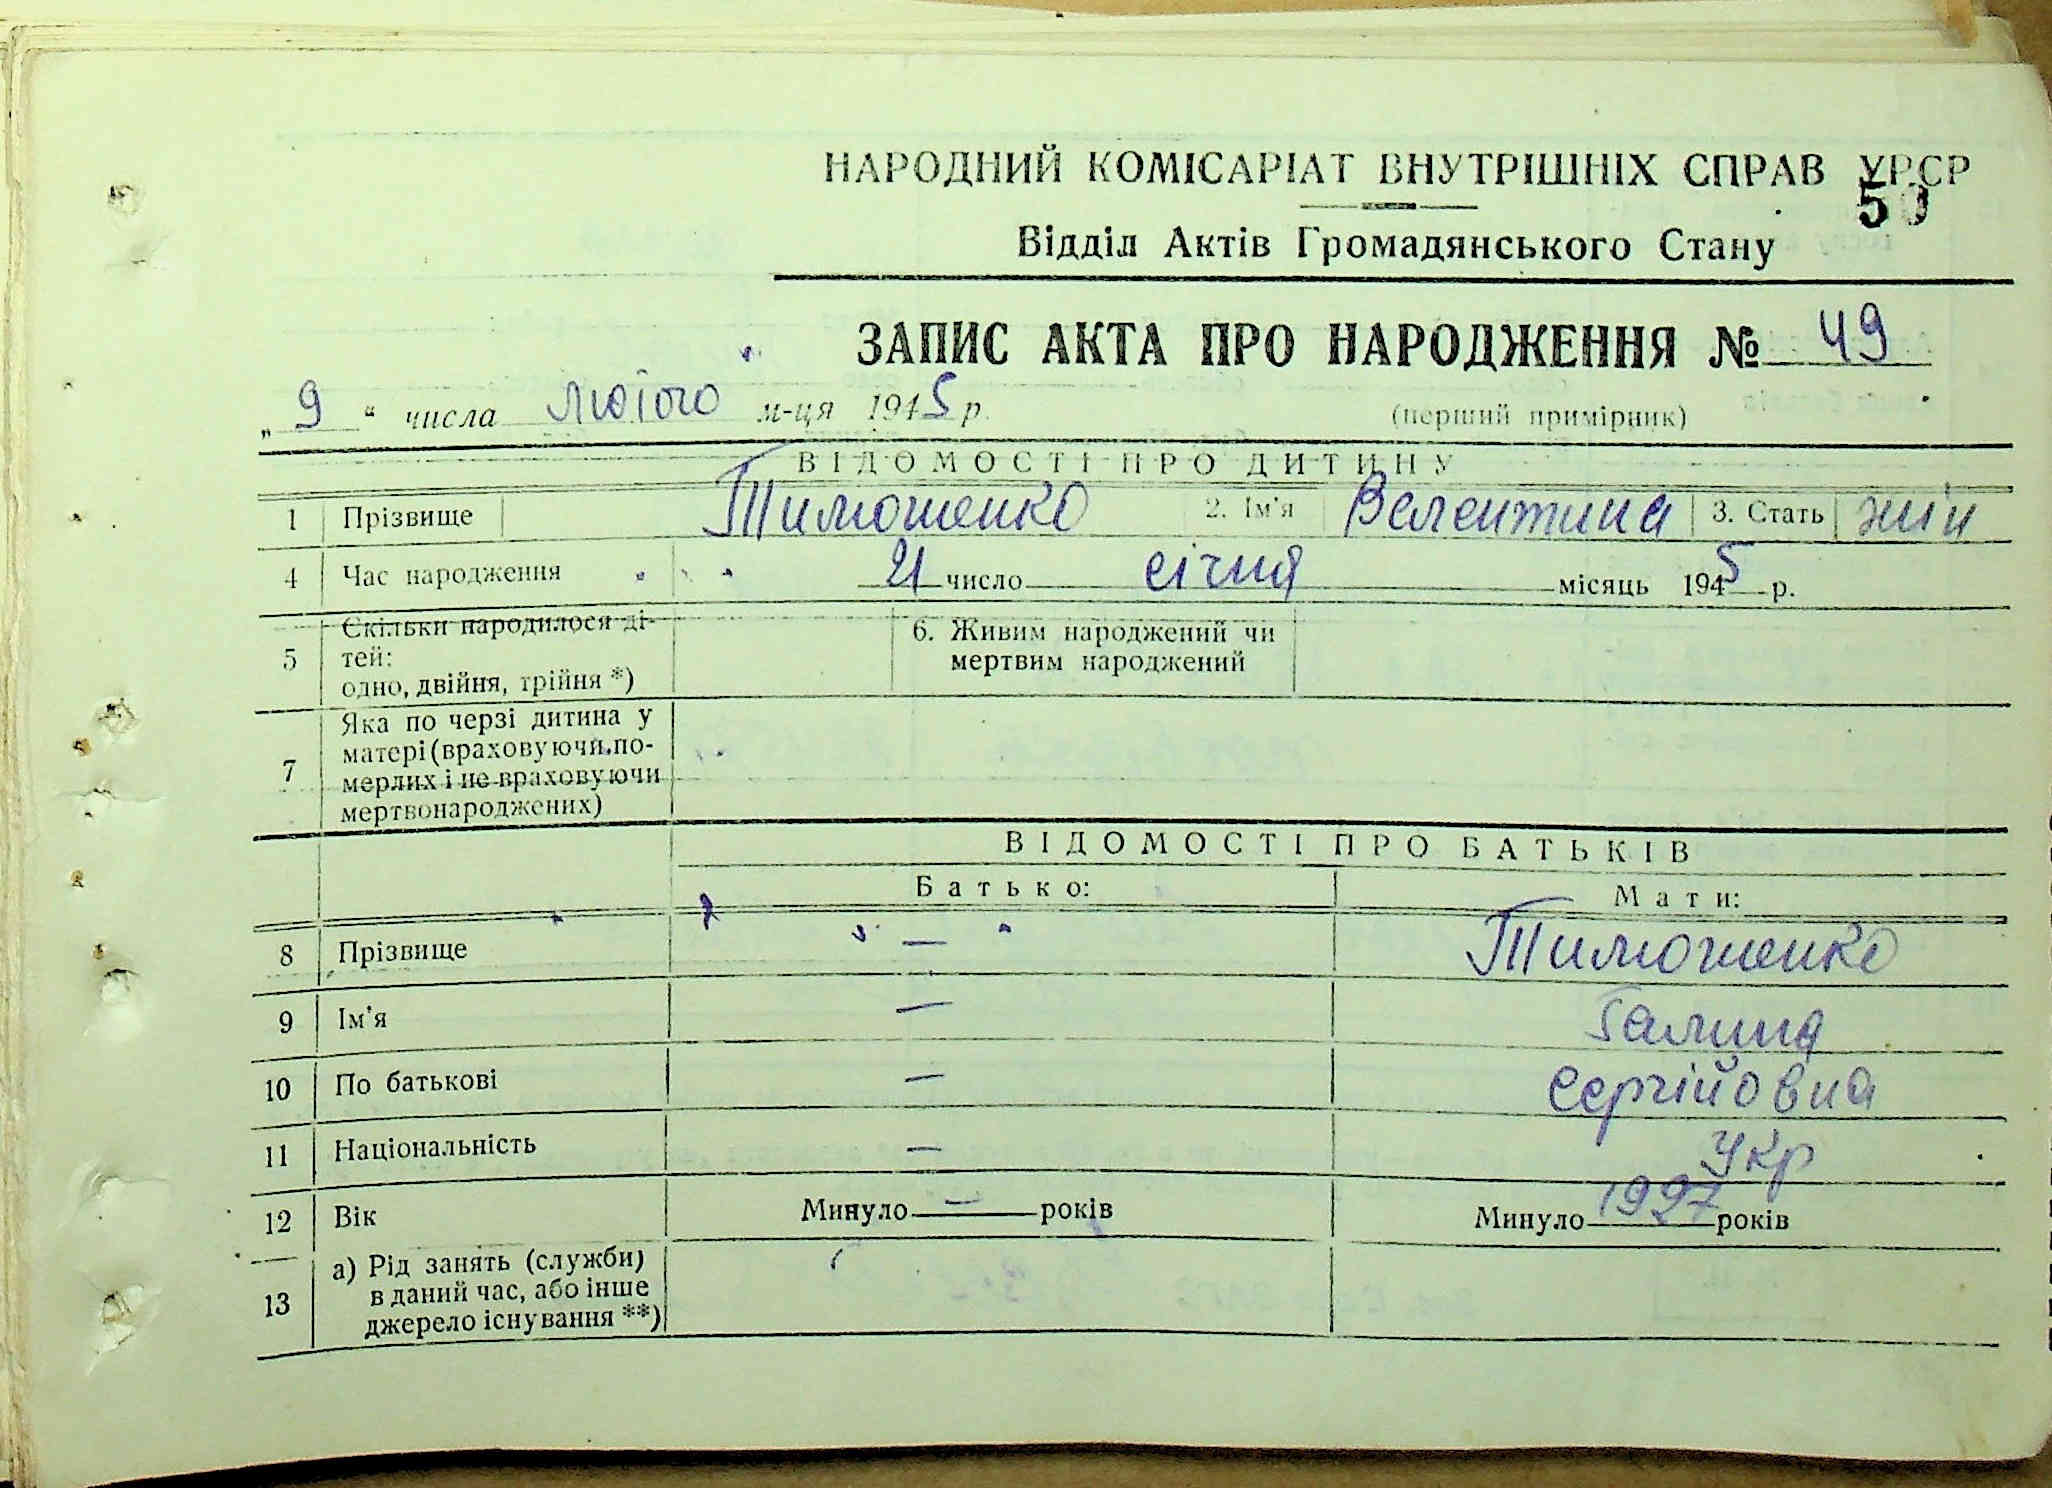 НАРОДНИЙ КОМІСАРІАТ ВНУТРІШНІХ СПРАВ УРСР
50
Відділ Актів Громадянського Стану
ЗАПИС АКТА ПРО НАРОДЖЕННЯ № 49
„ 9 “ числа лютого м-ця 1945 р. (перший примірник)
ВІДОМОСТІ ПРО ДИТИНУ
1 Прізвище Тимошенко 2. Ім'я Велентина 3. Стать жін
4 Час народження 21 число січня місяць 1945 р.
5 Скільки народилося ді-
тей:
одно, двійня, трійня *)
6. Живим народжений чи
мертвим народжений
7 Яка по черзі дитина у
матері (враховуючи по-
мерлих і не враховуючи
мертвонароджених)
ВІДОМОСТІ ПРО БАТЬКІВ
Батько: Мати:
8 Прізвище — Тимошенко
9 Ім'я — Галина
10 По батькові — Сергійовна
11 Національність — Укр
12 Вік Минуло — років Минуло 1927 років
13 а) Рід занять (служби)
в даний час, або інше
джерело існування **)